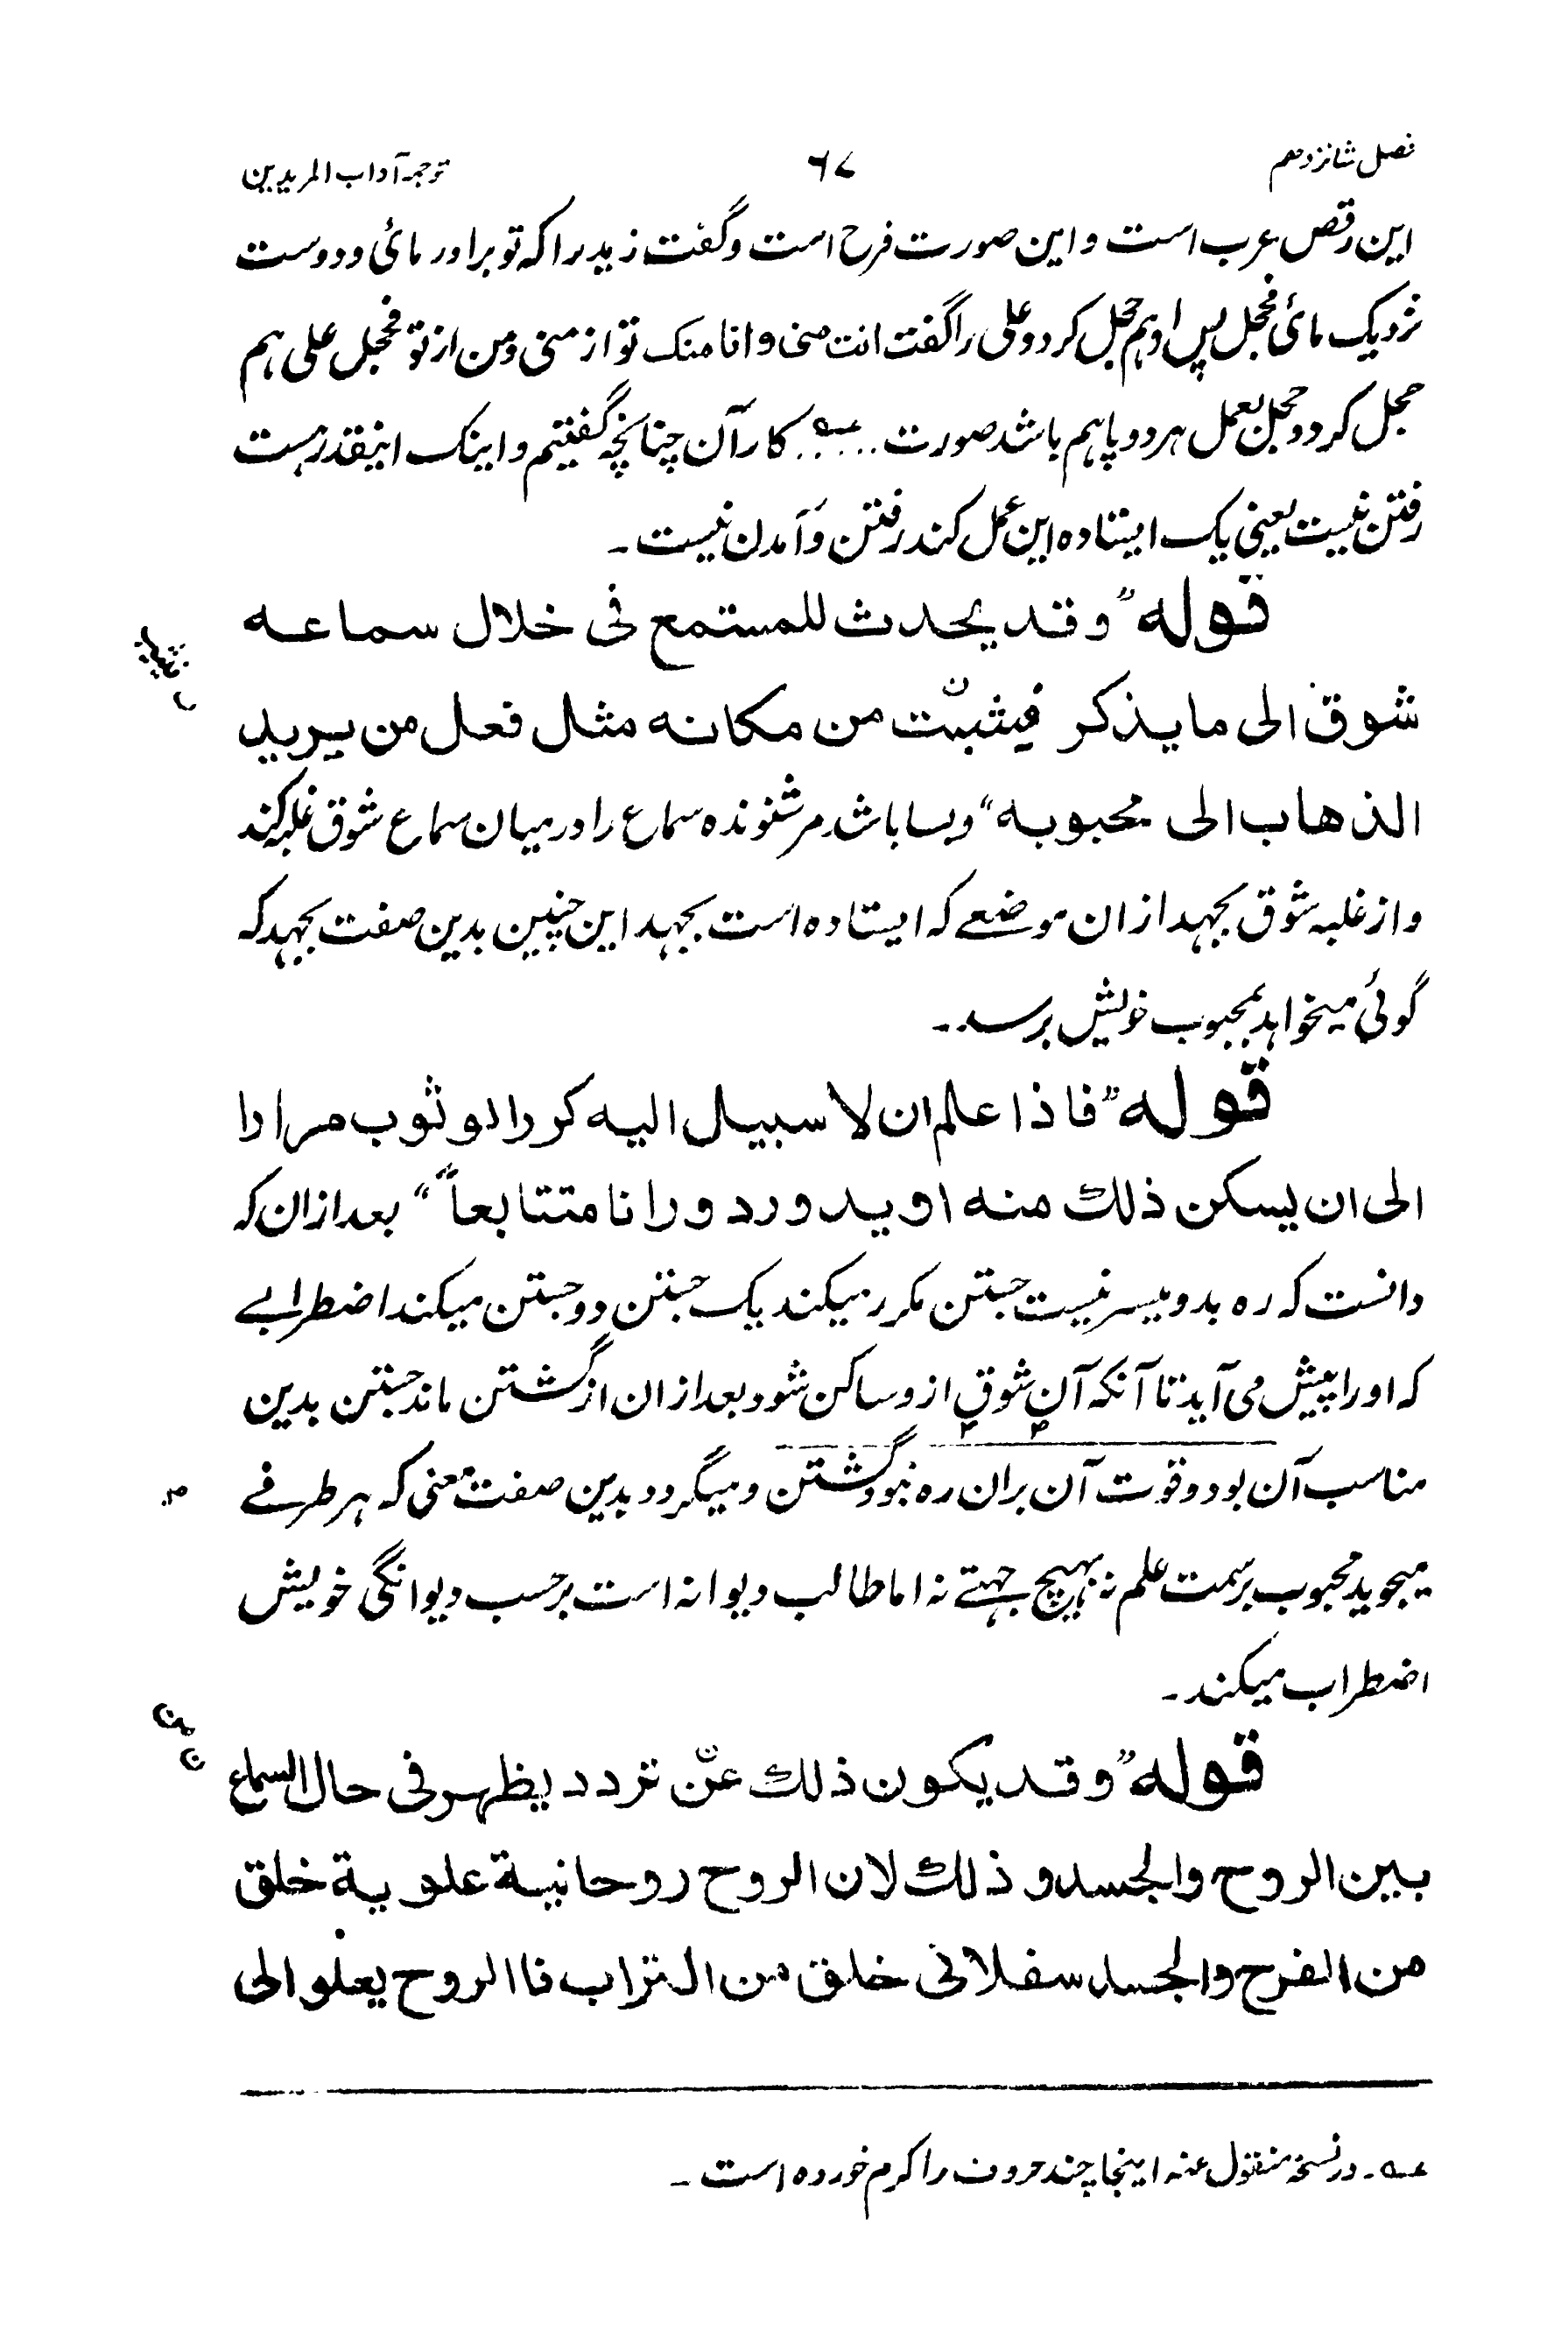 فصل شانزدهم ۶۷ ترجمہ آداب المریدین
این رقص عرب است و این صورت فرح است و گفت زید را که تو برادر مائی و دوست
نزدیک مائی فحجل پس او هم حجل کرد و علی را گفت انت منی و انا منک تو از منی و من از تو فحجل علی هم
حجل کرد و حجل بعمل هر دو پا هم باشد صورت ...... عـه کار آن چنانچه گفتیم و اینک اینقدر هست
رفتن نیست یعنی یک ایستاده این عمل کند رفتن و آمدن نیست ـ
قوله "وقد يحدث للمستمع فى خلال سماعه
شوق الى ما يذكر فيثبت من مكانه مثل فعل من يريد
الذهاب الى محبوبه" و بسا باشد مر شنونده سماع را در میان سماع شوق غلبه کند
و از غلبه شوق بجهد ازان موضعے که ایستاده است بجهد این چنین بدین صفت بجهد که
گوئی میخواهد بمحبوب خویش برسد ـ
قوله "فاذا علم ان لا سبيل اليه كرر الوثوب مرارا
الى ان يسكن ذلك منه او يدور دورانا متتابعاً" بعد ازان که
دانست که ره بدو میسر نیست جستن مکرر میکند یک جستن دو جستن میکند اضطرابے
که او را پیش می آید تا آنکه آن شوق ازو ساکن شود بعد ازان از گشتن ماند جستن بدین
مناسب آن بود و قوت آن بران ره نبود گشتن و میگردد بدین صفت معنی که هر طرفے
میجوید محبوب بر سمت علم نه بهیچ جهتے نه اما طالب دیوانه است بر حسب دیوانگی خویش
اضطراب میکند ـ
قوله "وقد يكون ذلك عن تردد يظهر فى حال السماع
بين الروح والجسد و ذلك لان الروح روحانية علوية خلق
من الفرح والجسد سفلانى خلق من التراب فا الروح يعلو الى
عـه ـ در نسخہ منقول عنہ اینجا چند حروف را کرم خورده است ـ